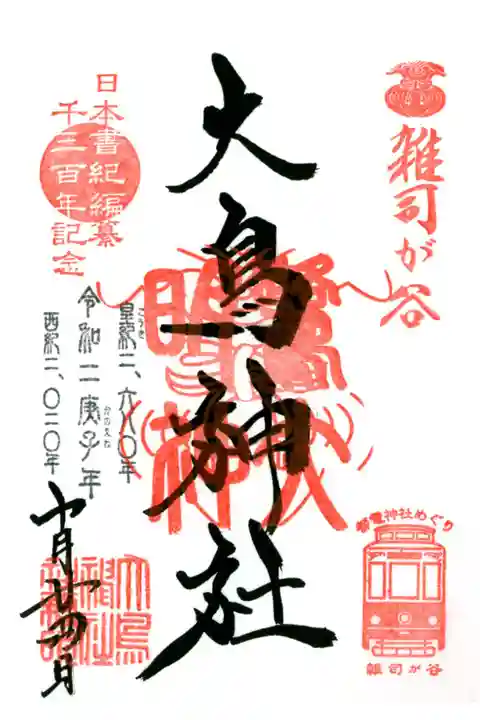 雑司が谷
大鳥神社
日本書紀編纂
千三百年記念
皇紀二、六八〇年
こうき
令和二庚子年
かのえね
西紀二、〇二〇年
十月廿四日
都電神社めぐり
雑司が谷